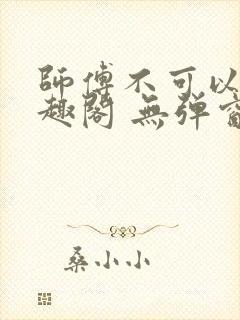 師傅不可以
趣閣 無弹窗
桑小小